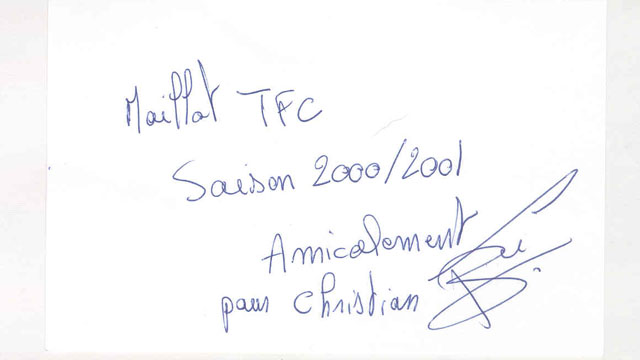 Maillot TFC
Saison 2000/2001
Amicalement
pour Christian